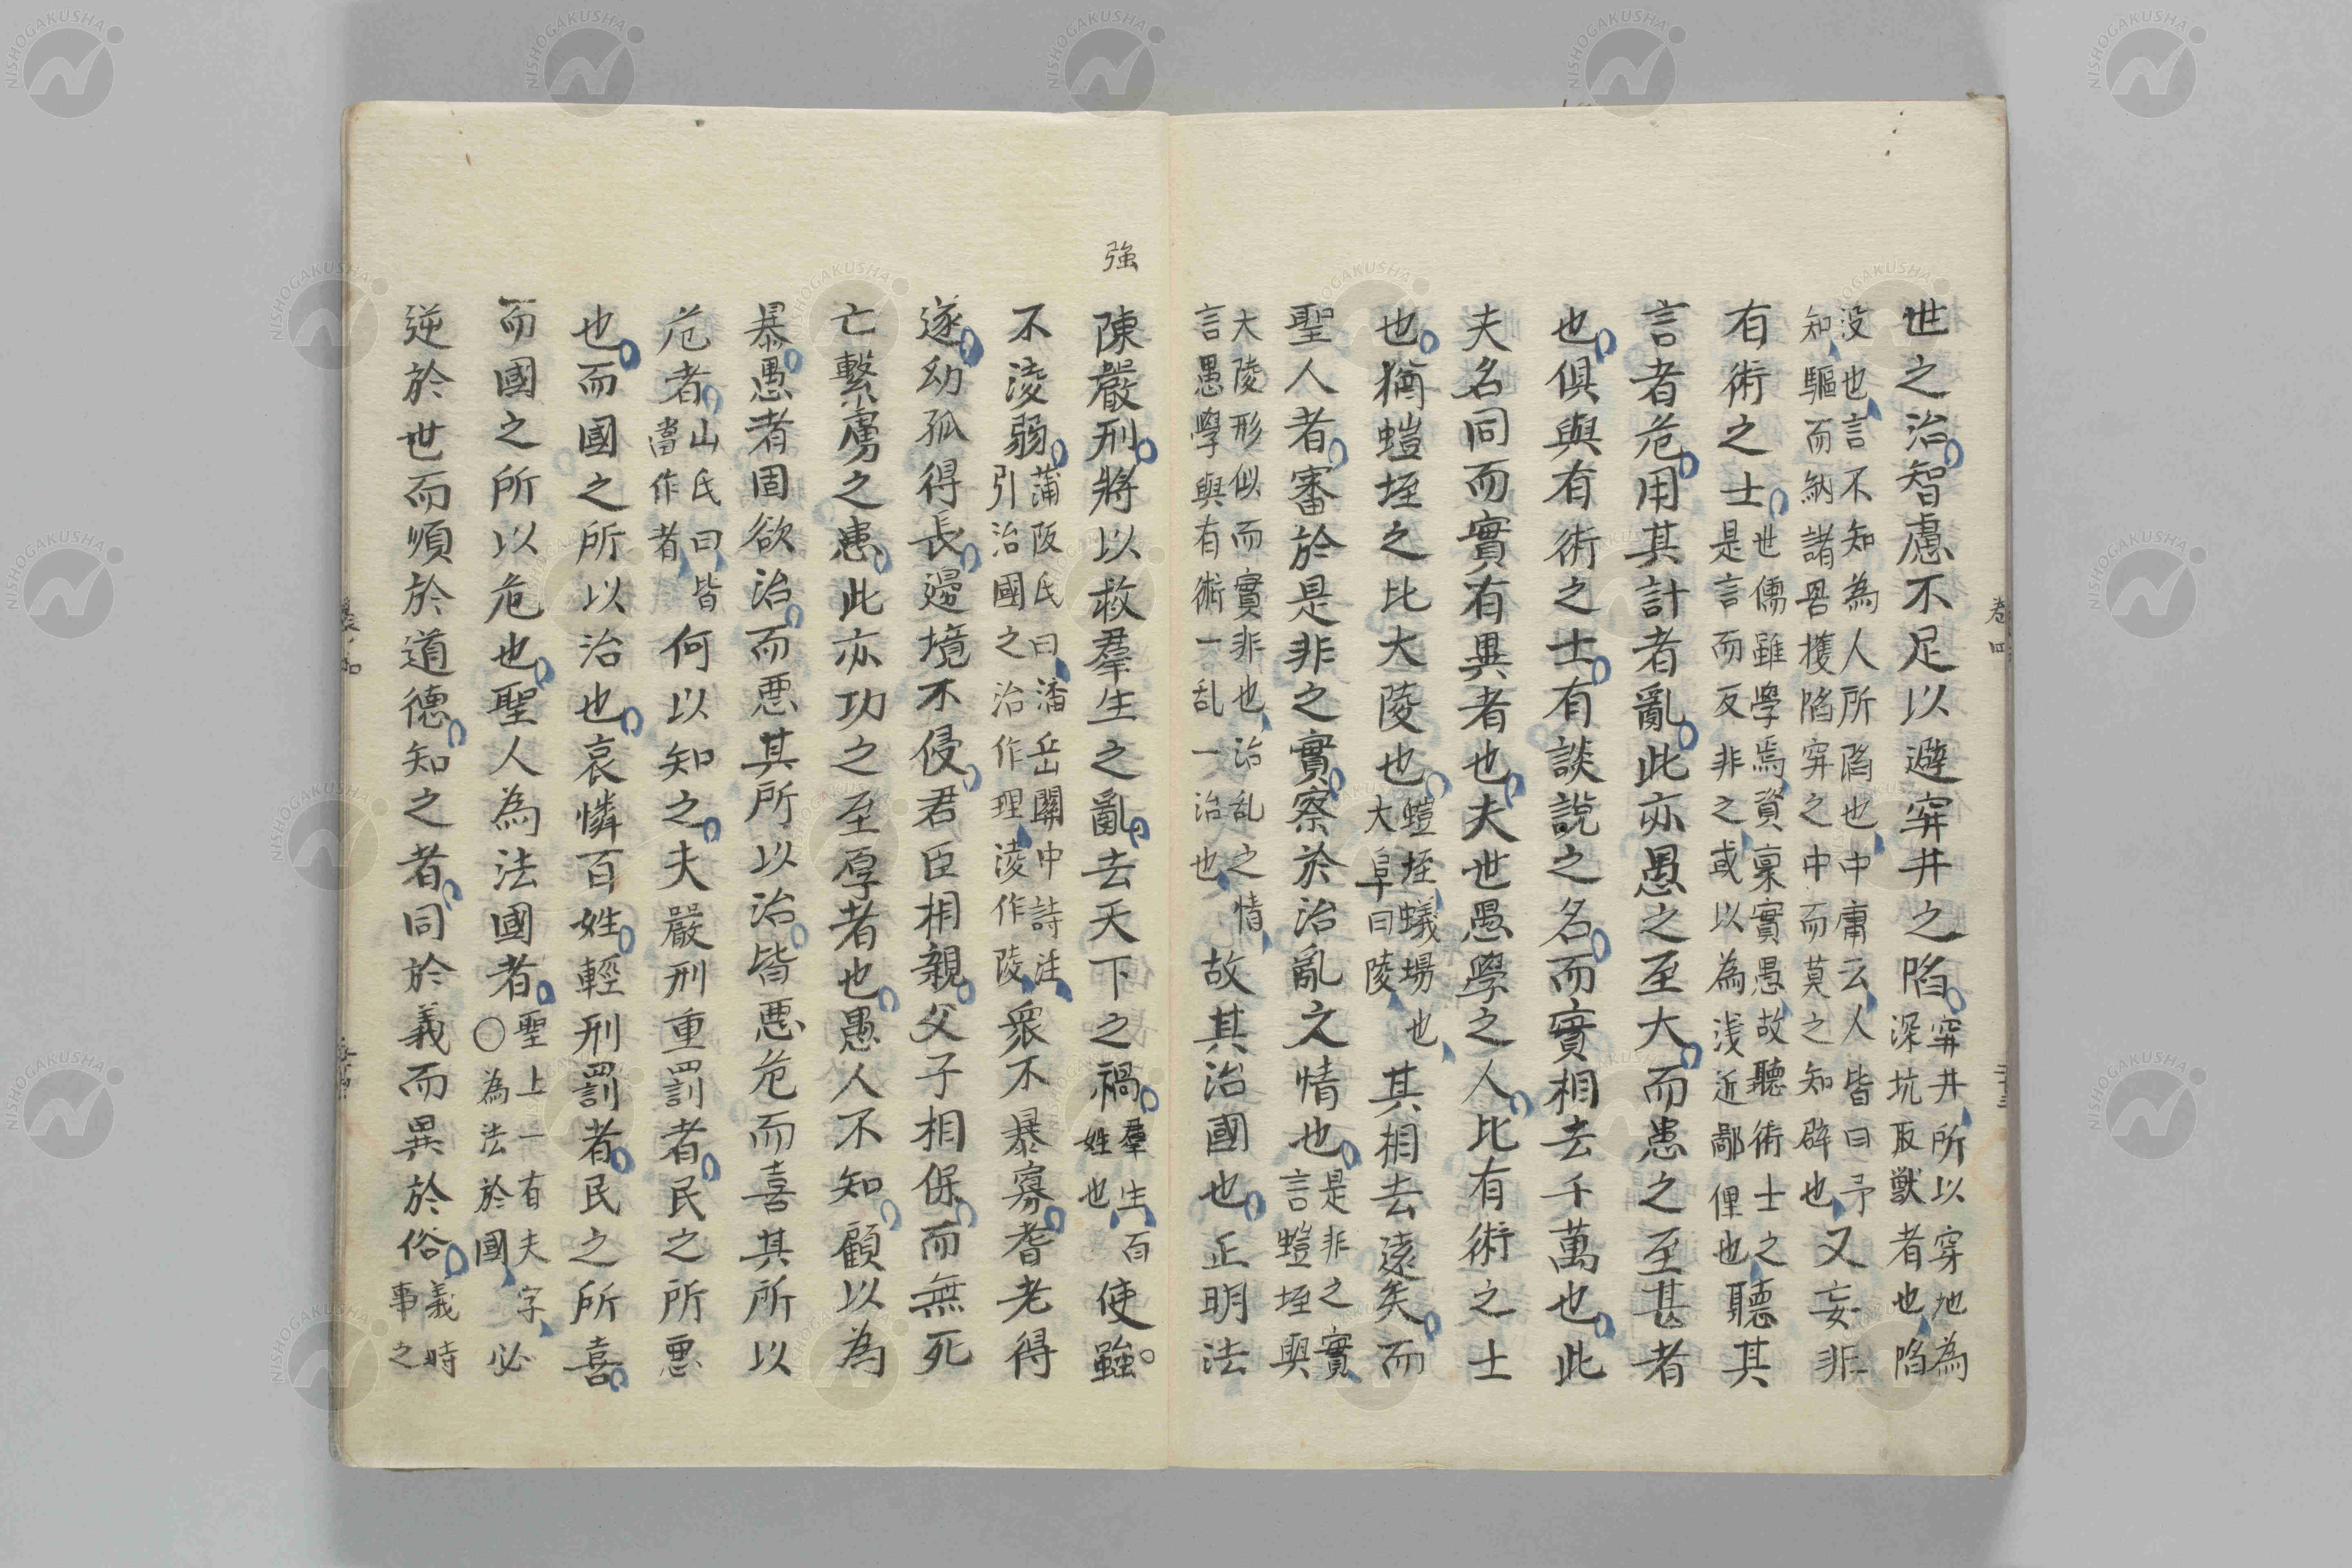 世之治智慮不足以避穽井之陷穽井所以穿地為深坑取獣者也陷
没也言不知為人所陷也中庸云人皆曰予知驅而納諸罟擭陷穽之中而莫之知辟也又妄非
有術之士世儒雖學焉資稟實愚故聽術士之是言而反非之或以為浅近鄙俚也聽其
言者危用其計者亂此亦愚之至大而患之至甚者
也俱與有術之士有談說之名而實相去千萬也此
夫名同而實有異者也夫世愚學之人比有術之士
也猶螘垤之比大陵也螘垤蟻場也大阜曰陵其相去遠矣而
聖人者審於是非之實察於治亂之情也是非之實言螘垤與
大陵形似而實非也治乱之情言愚學與有術一乱一治也故其治國也正明法
強
陳嚴刑將以救羣生之亂去天下之禍羣生百姓也使強
不淩弱蒲阪氏曰潘岳關中詩注引治國之治作理淩作陵衆不暴寡耆老得
遂幼孤得長邊境不侵君臣相親父子相保而無死
亡繫虜之患此亦功之至厚者也愚人不知顧以為
暴愚者固欲治而悪其所以治皆悪危而喜其所以
危者山氏曰皆當作者何以知之夫嚴刑重罰者民之所惡
也而國之所以治也哀憐百姓輕刑罰者民之所喜
而國之所以危也聖人為法國者聖上一有夫字〇為法於國必
逆於世而順於道德知之者同於義而異於俗義時事之
卷四